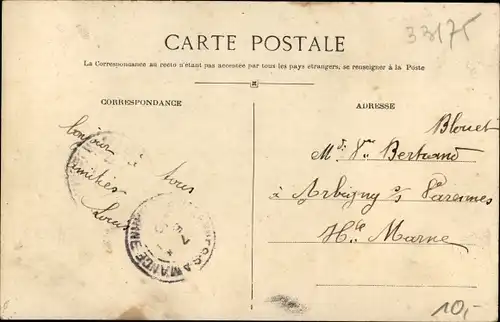 33175
CARTE POSTALE
La Correspondance au recto n'étant pas acceptée par tous les pays étrangers, se renseigner à la Poste
CORRESPONDANCE
ADRESSE
Bonjour à tous
amitiés
Louis
Blouet
Md Vve Bertrand
à Arbigny s/s Varennes
Hte Marne
10,-